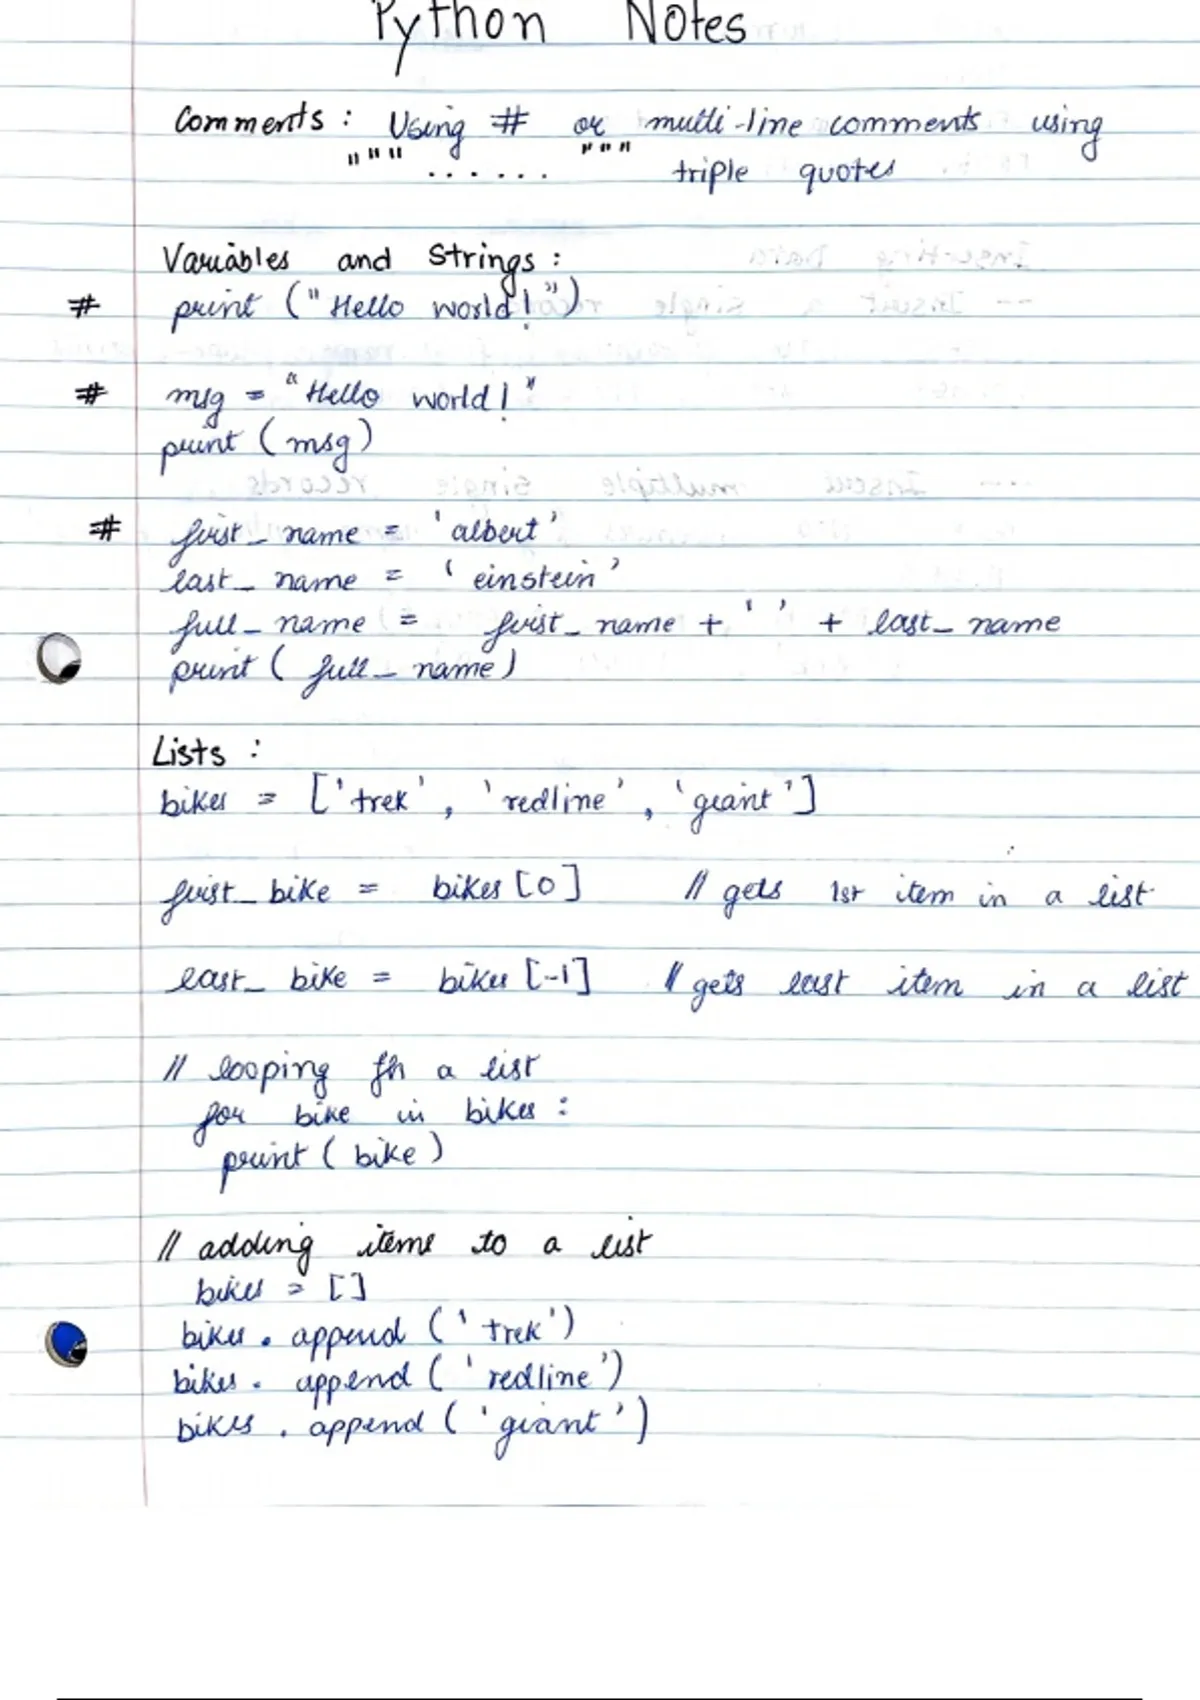 Python Notes
Comments : Using # or multi-line comments using
""" ...... """ triple quotes
Variables and Strings :
# print ("Hello world!")
# msg = "Hello world!"
print (msg)
# first_name = 'albert'
last_name = 'einstein'
full_name = first_name + ' ' + last_name
print ( full_name)
Lists :
bikes = ['trek', 'redline', 'giant']
first_bike = bikes [0] // gets 1st item in a list
last_bike = bikes [-1] // gets last item in a list
// looping th a list
for bike in bikes :
print ( bike )
// adding items to a list
bikes = []
bikes . append ('trek')
bikes . append ('redline')
bikes . append ('giant')